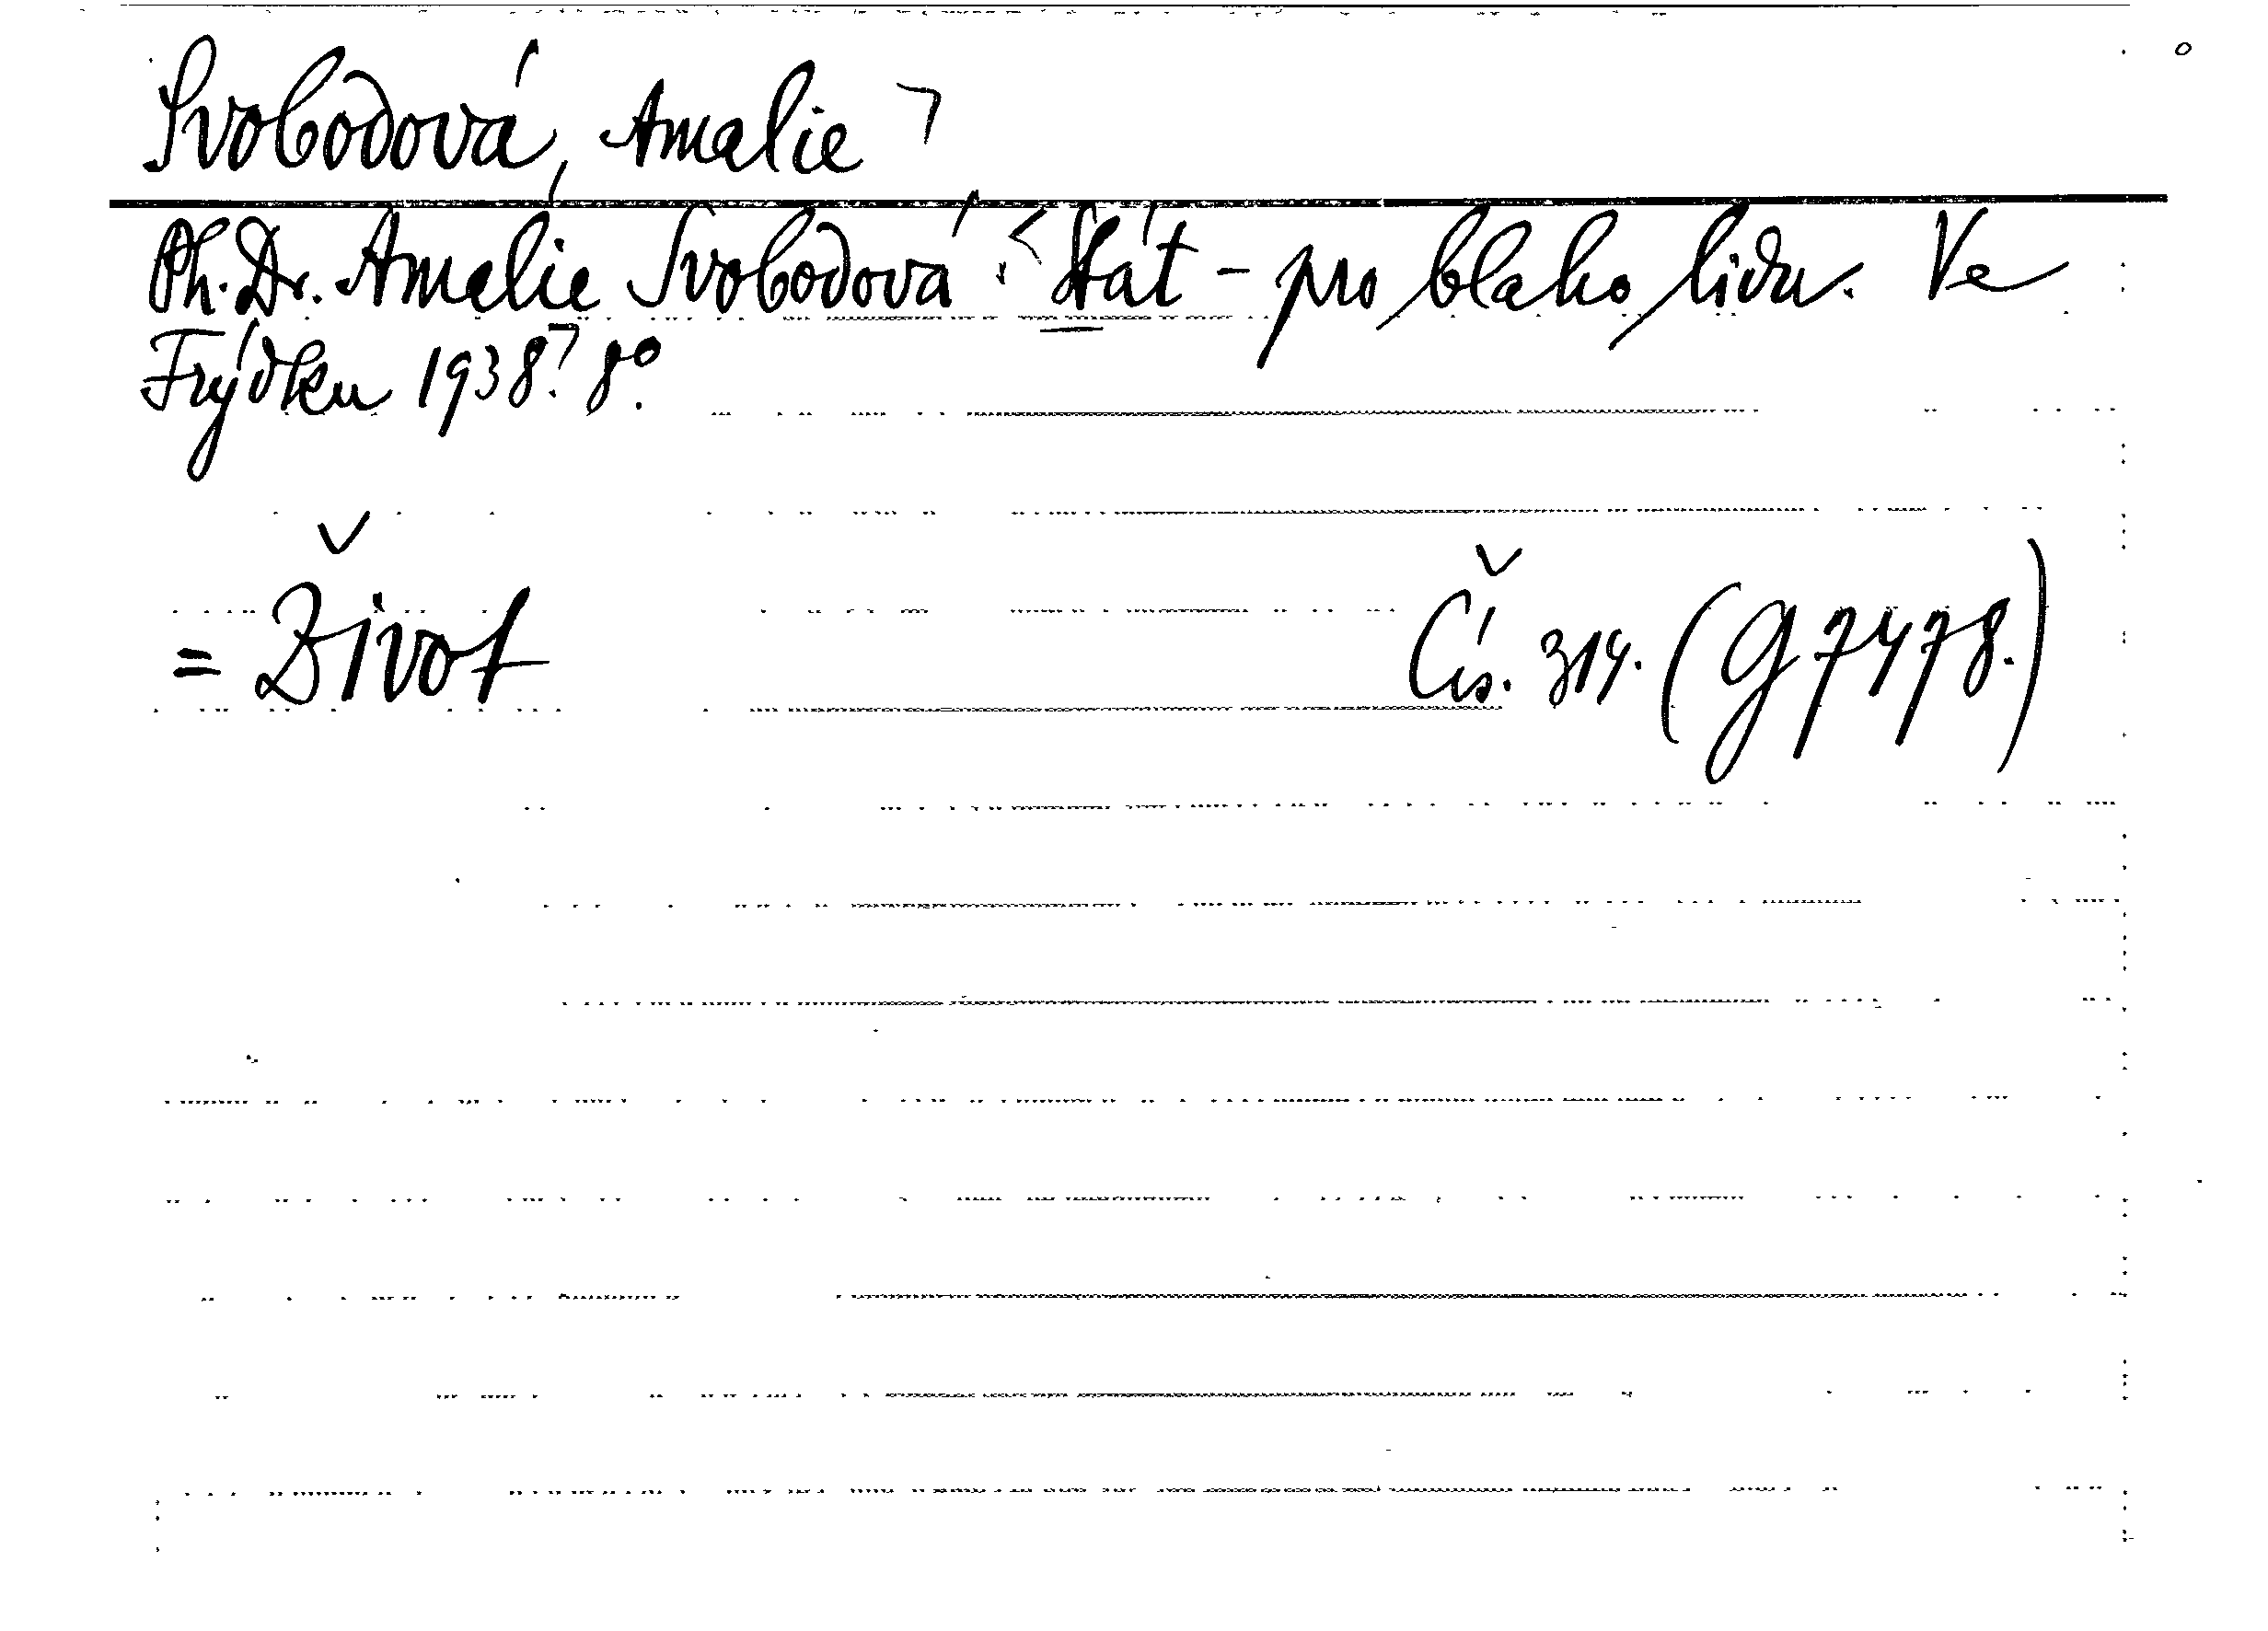 Svobodová, Amalie
Ph. Dr. Amalie Svobodová: Stát - pro blaho lidu. Ve
Frýdku 1938. 8°.
= Život Čís. 314. (G 7478.)